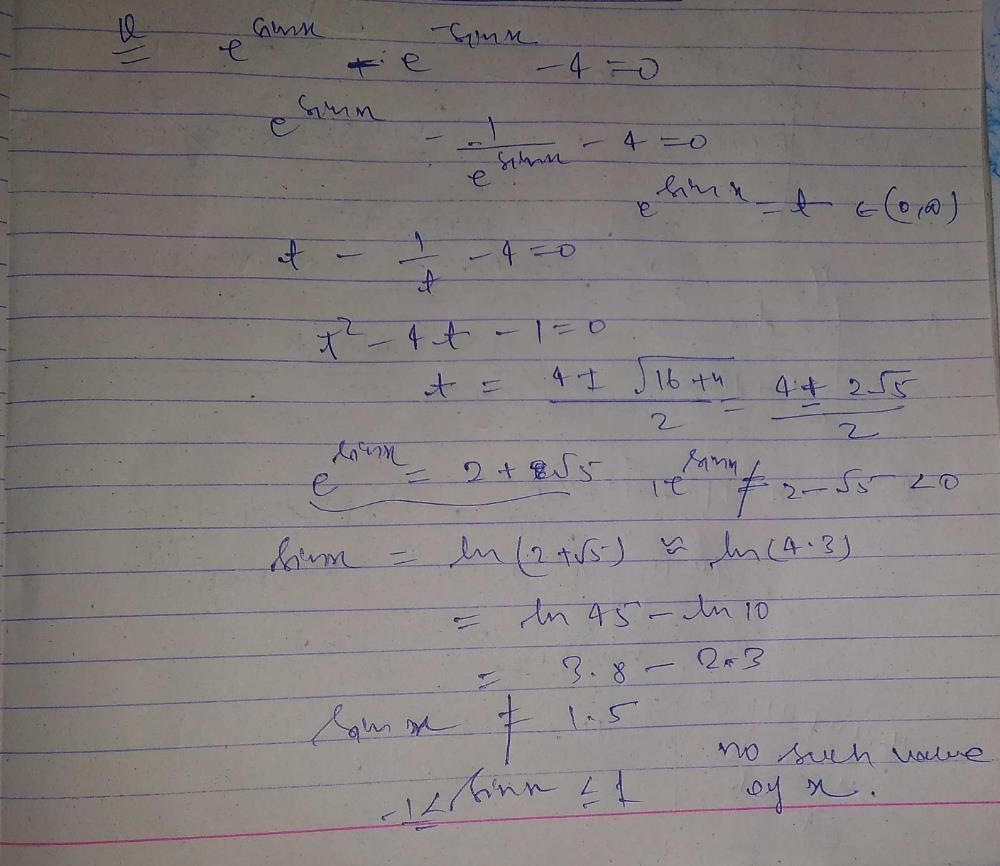 Q e^{sinx} - e^{-sinx} - 4 = 0
e^{sinx} - 1/e^{sinx} - 4 = 0
e^{sinx} = t ∈ (0,∞)
t - 1/t - 4 = 0
t² - 4t - 1 = 0
t = (4 ± √(16+4))/2 = (4 ± 2√5)/2
e^{sinx} = 2 + √5 , e^{sinx} ≠ 2 - √5 < 0
sinx = ln(2+√5) ≈ ln(4.3)
= ln 45 - ln 10
= 3.8 - 2.3
sin x ≠ 1.5
-1 ≤ sinx ≤ 1
no such value
of x.